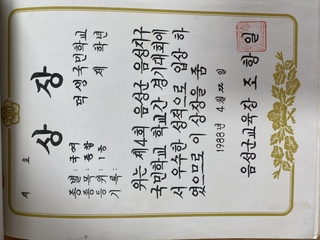 제 호
상 장
종별: 국여
종목:
등위: 1등
기록:
국민학교
제 학년
위는 제4회 음성군 음성지구
국민학교 학교간 경기대회에
서 우수한 성적으로 입상 하
였으므로 이 상장을 줌
1988년 4월 22일
음성군교육장 조 항